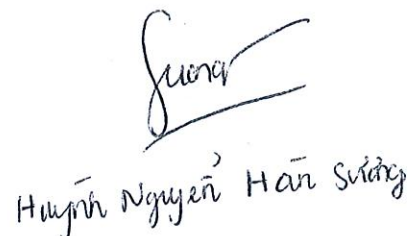 Sương
Huỳnh Nguyễn Hàn Sương